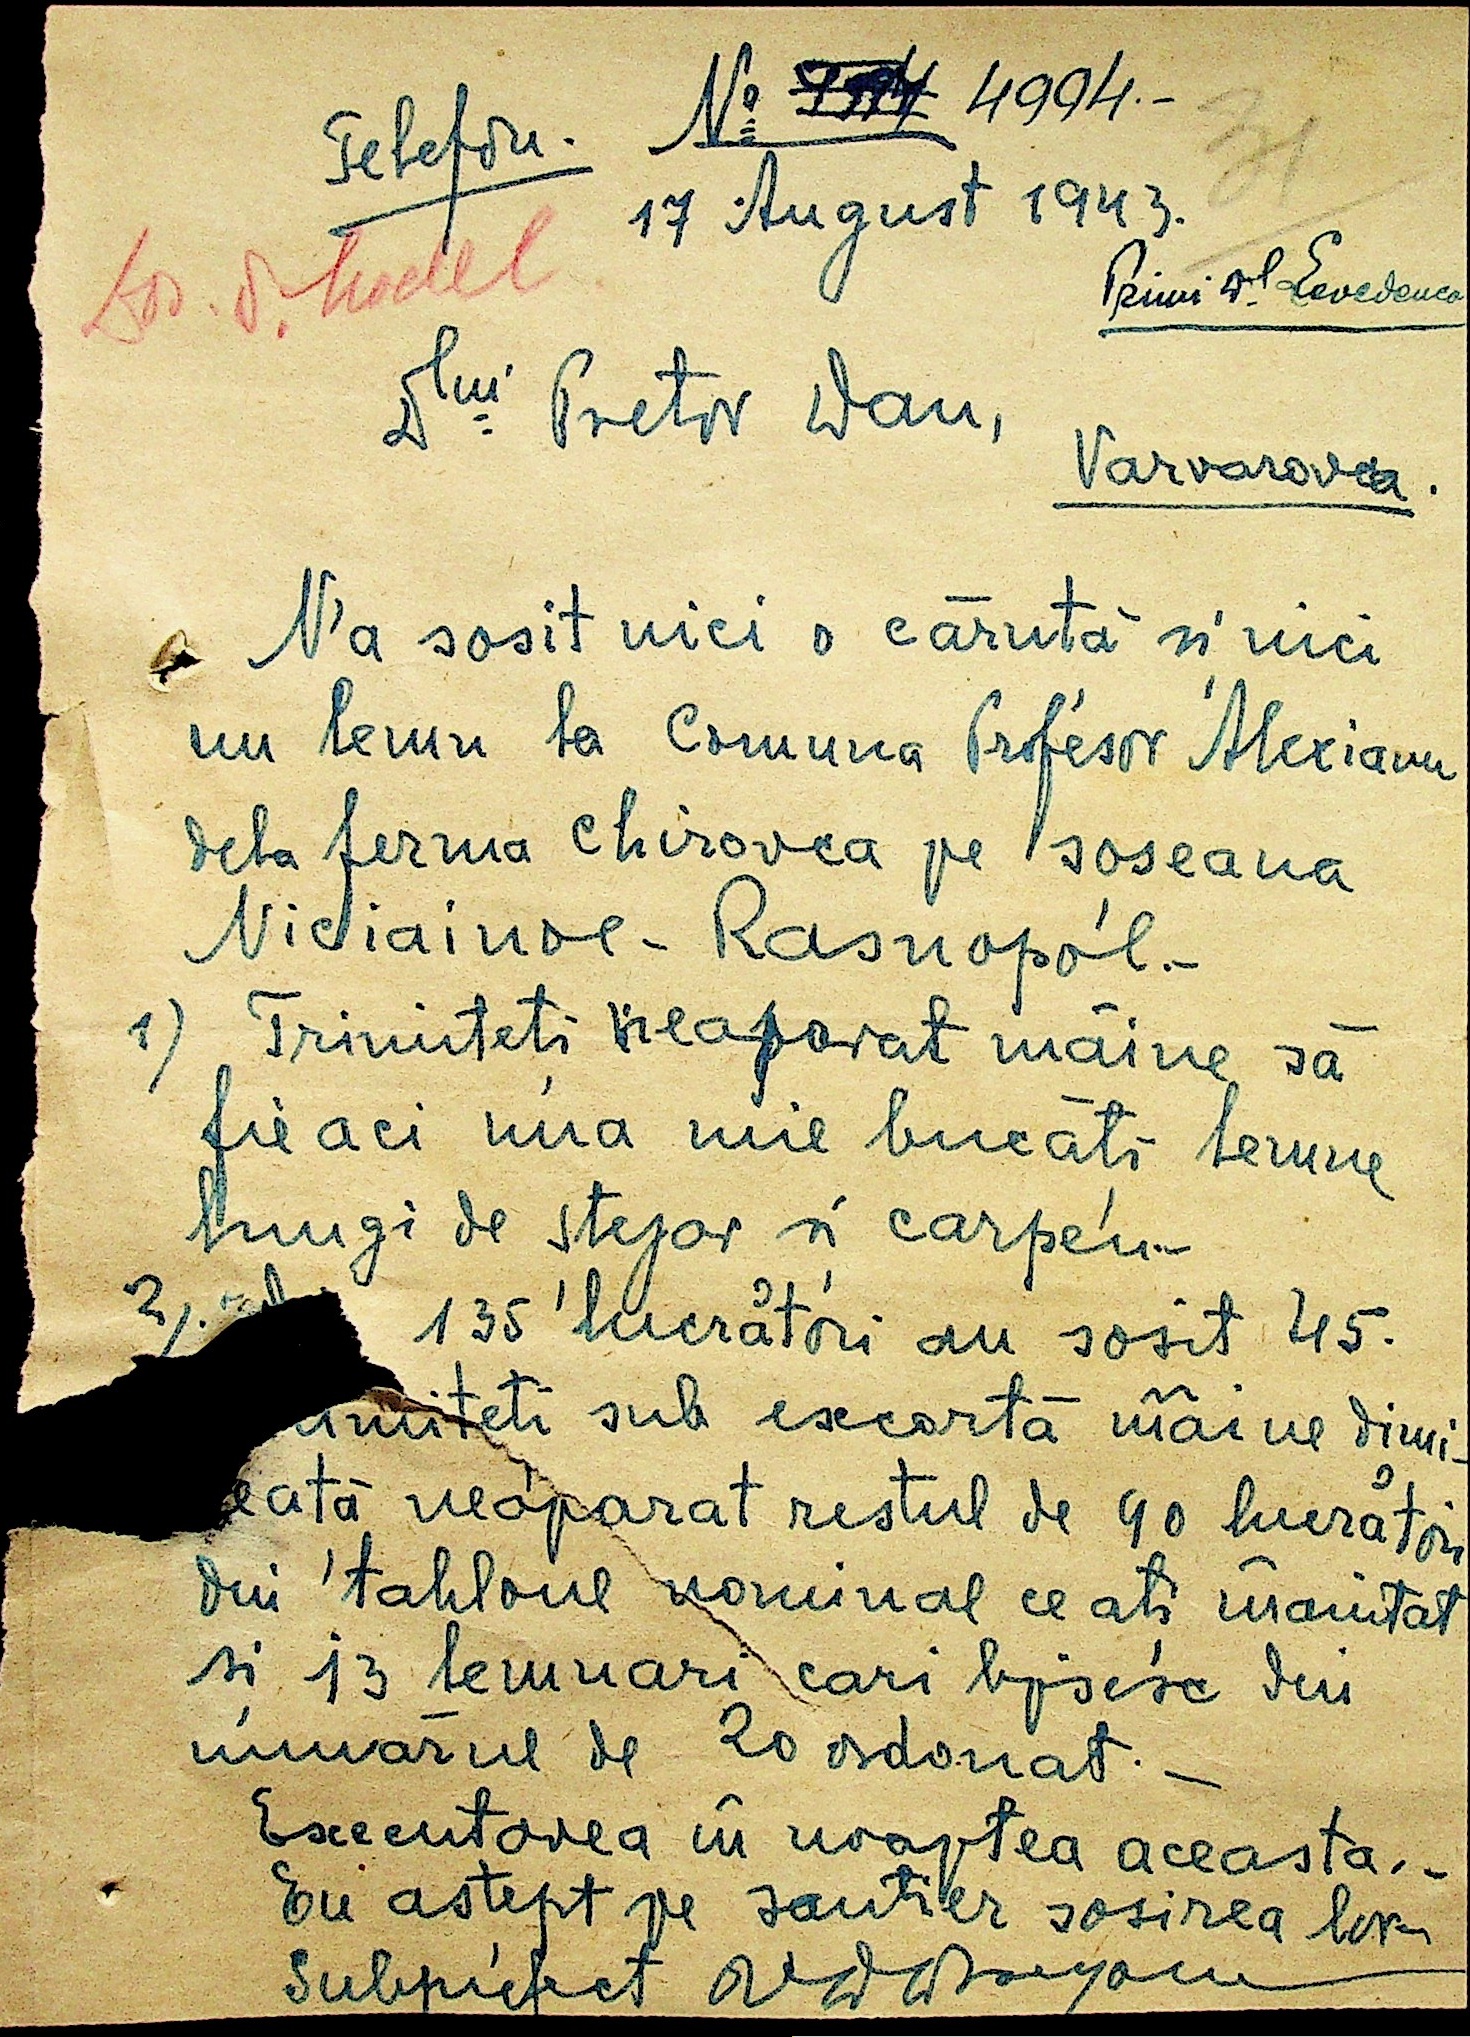 Telefon. Nº 4994.-
17 August 1943.
Dos. D. Model
Primi Dl
Dlui Pretor Dan,
Varvarovca.
N'a sosit nici o cārutā si nici
un lemn la Comuna Profesor Alexianu
dela ferma Chirovca pe soseana
Niciainoe - Rasnopol.-
1) Trimiteti neaparat māine sā
fie aci una mie bucāti lemne
lungi de stejar si carpen.-
2). 135 lucrători au sosit 45.
imiteti sub escortā māine dimi-
eatā neaparat restul de 90 lucrători
din tabloul nominal ce ati inaintat
si 13 lemnari cari lipsesc din
numārul de 20 ordonat.-
Executarea in noaptea aceasta.-
Eu astept pe santier sosirea lor
Subprefect